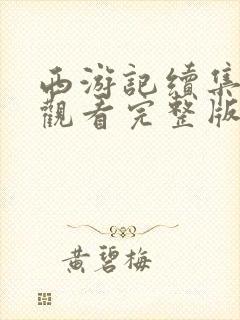 西游記續集
觀看完整版
黄碧梅